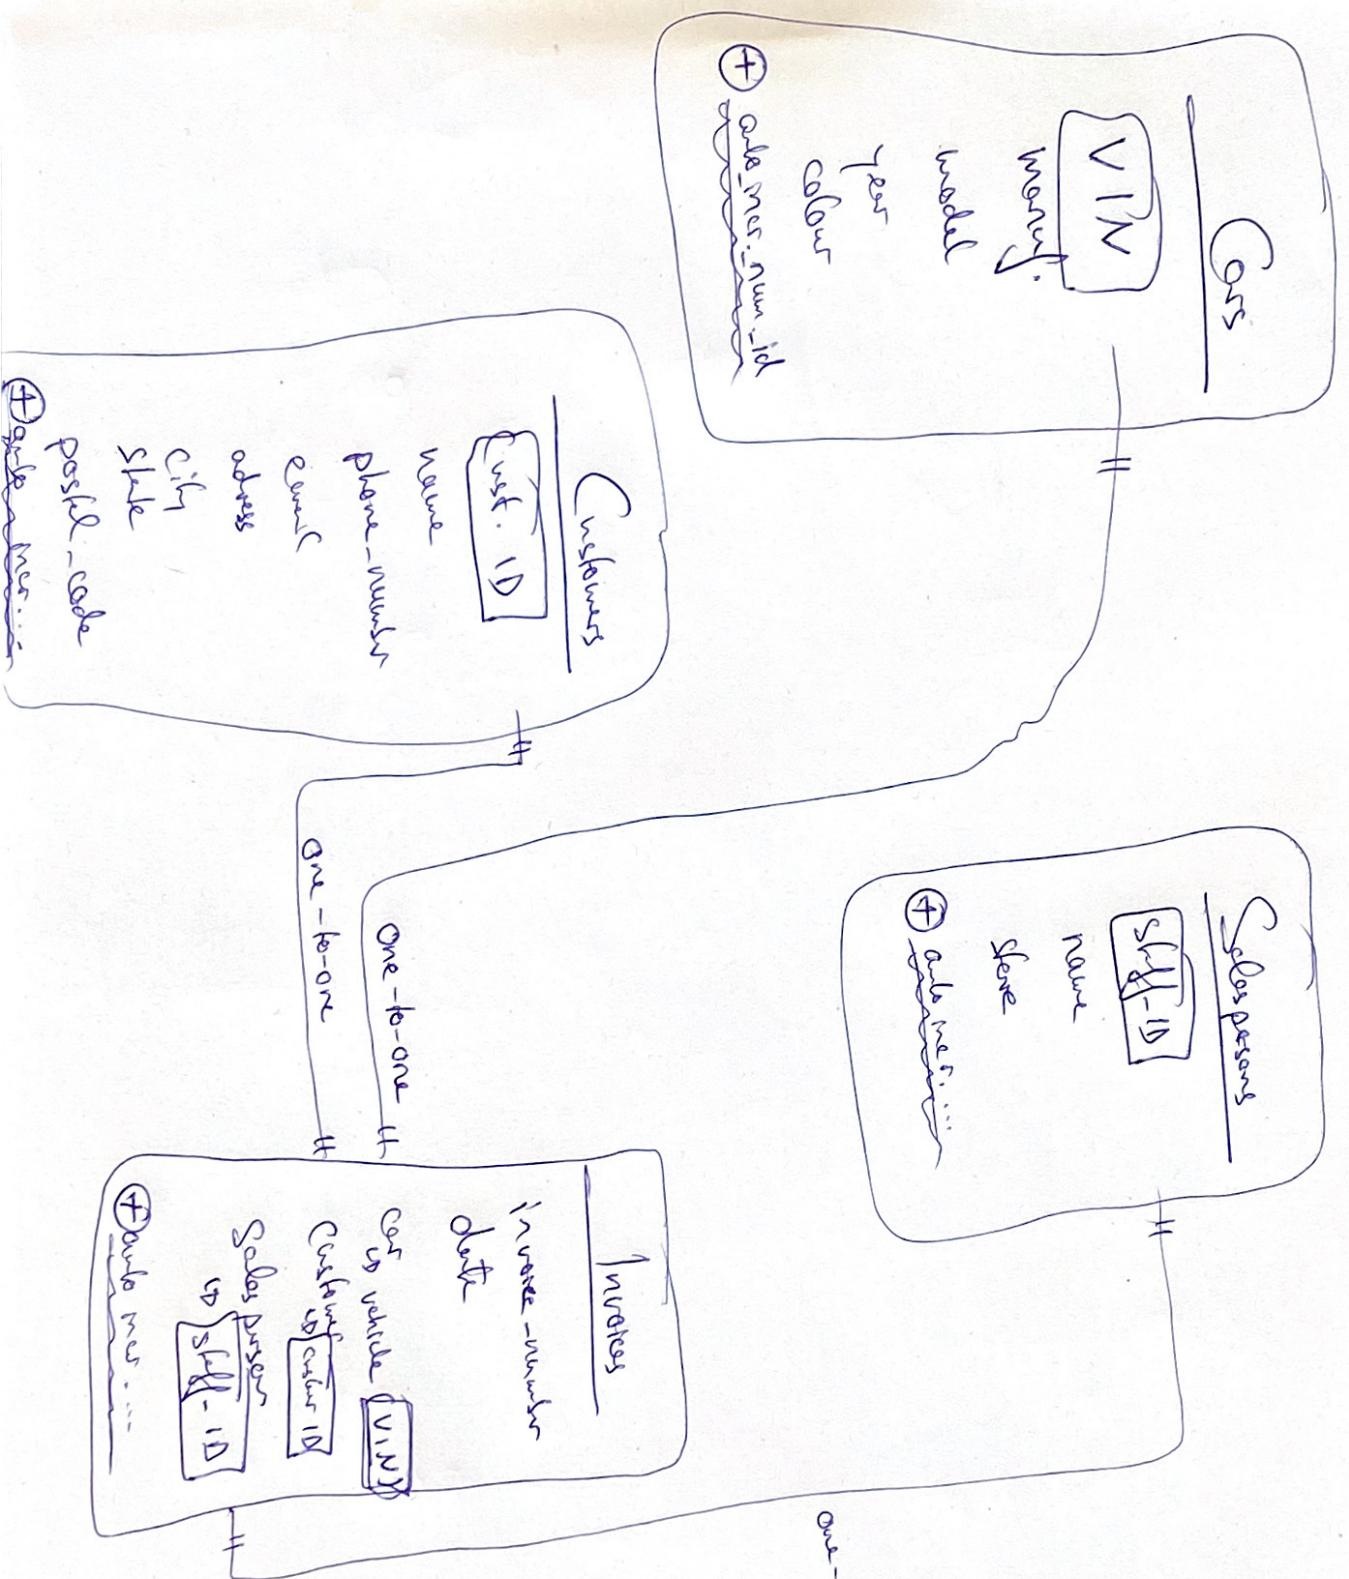 Cars
VIN
manuf.
model
year
colour
+ auto_incr._num_id
Customers
Cust. ID
name
phone_number
email
adress
city
state
postal_code
+ auto incr. ...
one-to-one
one-to-one
Salespersons
Staff-ID
name
store
+ auto incr. ...
Invoices
invoice_number
date
car
ID vehicle (VIN)
Customer
ID
Salesperson
ID Staff-ID
+ auto incr. ...
one-